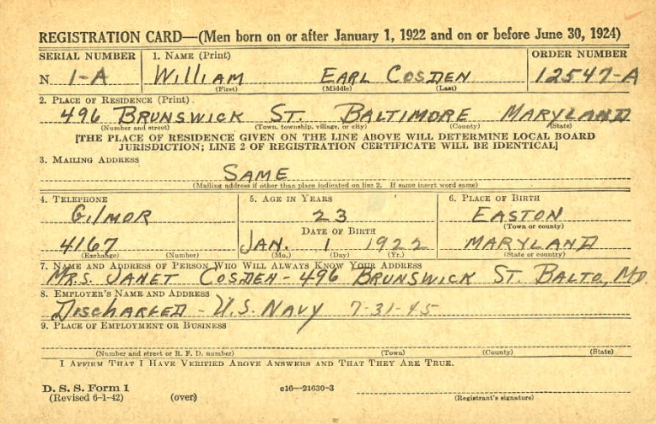 REGISTRATION CARD—(Men born on or after January 1, 1922 and on or before June 30, 1924)
SERIAL NUMBER 1. NAME (Print) ORDER NUMBER
N 1-A WILLIAM EARL COSDEN 12547-A
(First) (Middle) (Last)
2. PLACE OF RESIDENCE (Print)
496 BRUNSWICK ST. BALTIMORE MARYLAND
(Number and street) (Town, township, village, or city) (County) (State)
[THE PLACE OF RESIDENCE GIVEN ON THE LINE ABOVE WILL DETERMINE LOCAL BOARD
JURISDICTION; LINE 2 OF REGISTRATION CERTIFICATE WILL BE IDENTICAL]
3. MAILING ADDRESS
SAME
(Mailing address if other than place indicated on line 2. If same insert word same)
4. TELEPHONE 5. AGE IN YEARS 6. PLACE OF BIRTH
GILMOR 23 EASTON
DATE OF BIRTH (Town or county)
4167 JAN. 1 1922 MARYLAND
(Exchange) (Number) (Mo.) (Day) (Yr.) (State or country)
7. NAME AND ADDRESS OF PERSON WHO WILL ALWAYS KNOW YOUR ADDRESS
MRS. JANET COSDEN - 496 BRUNSWICK ST. BALTO, MD.
8. EMPLOYER'S NAME AND ADDRESS
DISCHARGED - U.S. NAVY 7-31-45
9. PLACE OF EMPLOYMENT OR BUSINESS
(Number and street or R. F. D. number) (Town) (County) (State)
I AFFIRM THAT I HAVE VERIFIED ABOVE ANSWERS AND THAT THEY ARE TRUE.
D. S. S. Form 1
(Revised 6-1-42) (over) c16—21630-3
(Registrant's signature)